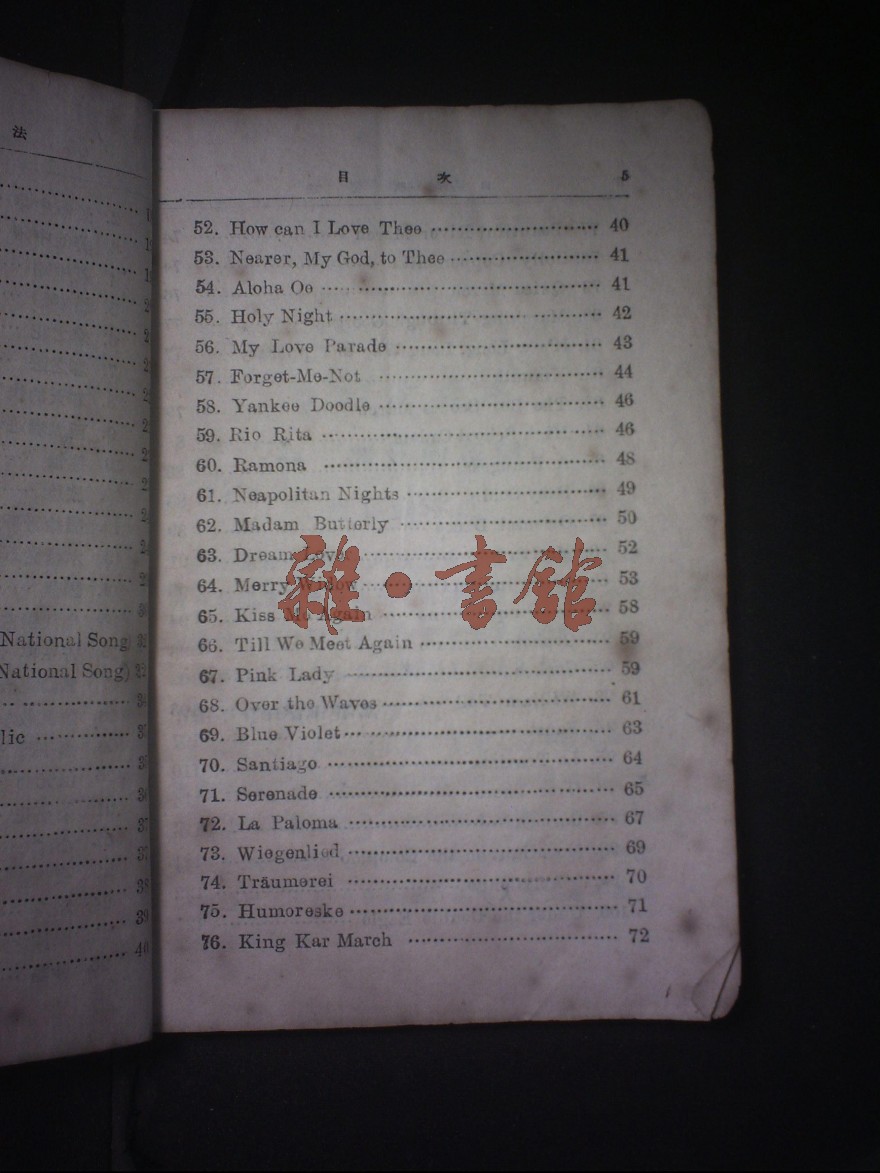 法
National Song)
National Song)
lic
目 次 5
52. How can I Love Thee 40
53. Nearer, My God, to Thee 41
54. Aloha Oe 41
55. Holy Night 42
56. My Love Parade 43
57. Forget-Me-Not 44
58. Yankee Doodle 46
59. Rio Rita 46
60. Ramona 48
61. Neapolitan Nights 49
62. Madam Butterly 50
63. Dream Lover 52
64. Merry Widow 53
65. Kiss Me Again 58
66. Till We Meet Again 59
67. Pink Lady 59
68. Over the Waves 61
69. Blue Violet 63
70. Santiago 64
71. Serenade 65
72. La Paloma 67
73. Wiegenlied 69
74. Träumerei 70
75. Humoreske 71
76. King Kar March 72
雜·書館